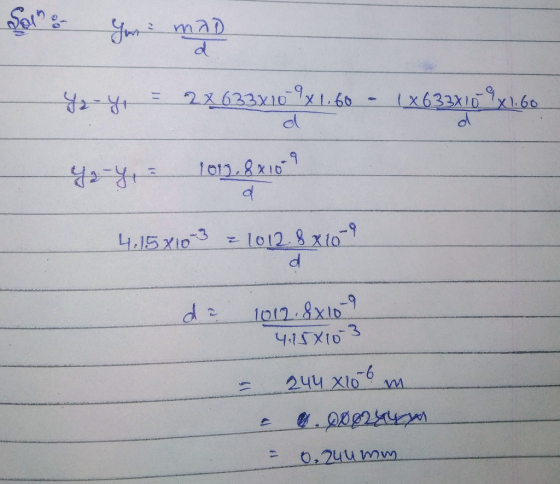 Solⁿ :- yₘ = mλD/d
y₂-y₁ = 2×633×10⁻⁹×1.60/d - 1×633×10⁻⁹×1.60/d
y₂-y₁ = 1012.8×10⁻⁹/d
4.15×10⁻³ = 1012.8×10⁻⁹/d
d = 1012.8×10⁻⁹/4.15×10⁻³
= 244×10⁻⁶ m
= 0.000244m
= 0.244mm